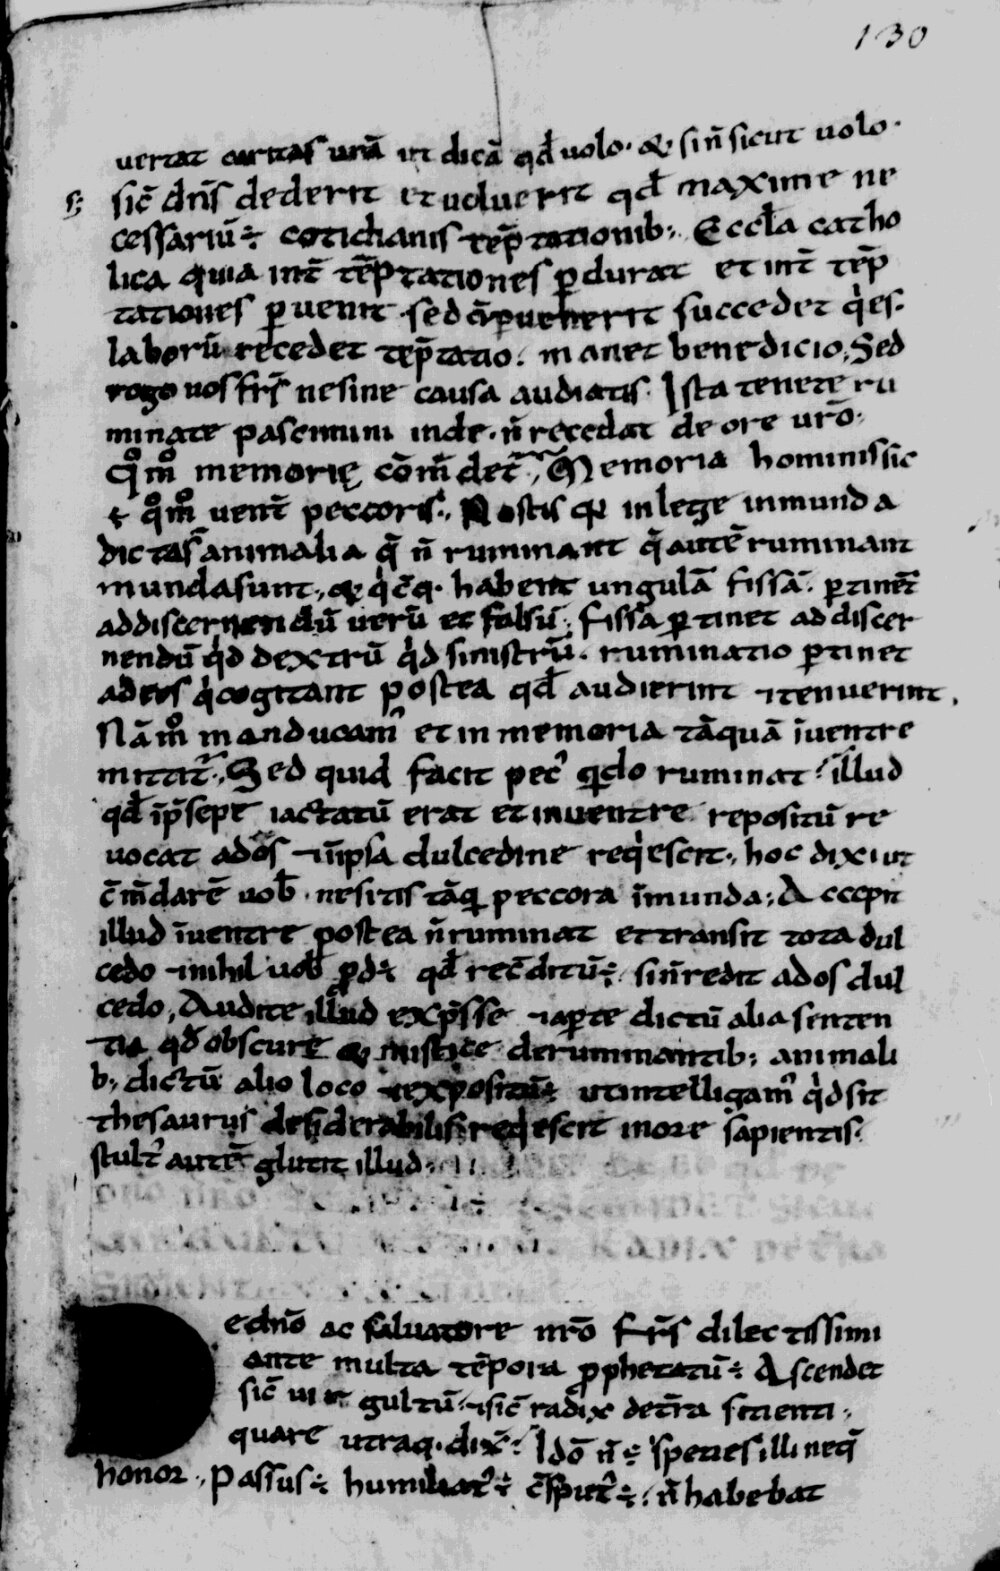 130
uertat caritas urā in dicā qđ uolo · & sin̄ sicut uolo ·
s; sic̄ dn̄s dederit et uoluerit qđ maxime ne
cessariū ÷ cotidianis tēptationib; Eccła catho
lica quia int̄ tēptationes ꝑdurat et int̄ tēp
tationes ꝑuenit · sed ꝑuenerit succedet q̇es ·
laborū recedet tēptatio · manet benedicio; Sed
rogo uos fr̄s ne sine causa audiatis · Ista tenete ru
minate pascimini inde · n̄ recedat de ore ur̄o ·
Qͦmͦ memorię cōm̄det̄ · Memoria hominis sic
ē qͦmͦ uent̄ peccoris · Nostis qꝫ in lege inmunda
dictas animalia q̄ n̄ ruminant q̄ autē ruminant
munda sunt · & q̇cq̄ · habent ungulā fissā · ꝑtinet̄
ad discernendū uerū et falsū · fissa ꝑtinet ad discer
nendū q̇d dextrū q̇d sinistrū · ruminatio ꝑtinet
ad eos q̇ cogitant postea qđ audierint ⁊ tenuerint ·
Nā mͦ manducam᾽ et in memoria tāquā ī uentre
mittit᾽ · Sed quid facit pec᾽ qn̄do ruminat · illud
qđ ī p̄sepe iactatū erat et in uentre repositū re
uocat ad os ⁊ in ipsa dulcedine req̇escit · hoc dixi ut
c̄m̄darē uob̄ · ne sitis tāqꝫ peccora īmunda; Accepit
illud ī uentre postea n̄ ruminat et transit tota dul
cedo ⁊ nihil uob̄ ꝓd÷ qđ rec̄ditū ÷ · si n̄ redit ad os dul
cedo, Audite illud exp̄sse ⁊ aꝑte dictū alia senten
tia qđ obscure & mistice de ruminantib; animali
b; dictū alio loco ⁊ expositū ÷ ut intelligam᾽ q̇d sit
thesaurus desiderabilis req̇escit in ore sapientis ·
stult᾽ autē glutit illud ·
De dn̄o ac saluatore nr̄o fr̄s dilectissimi
ante multa tēpora ꝓphetatū ÷ Ascendet
sic̄ uirgultū · ⁊ sic̄ radix de t̄ra sitienti ·
quare utraq · dix̄ · Idō n̄ ÷ species illi neq̄
honor · Passus ÷ humiliat᾽ ÷ c̄sput᾽ ÷ · n̄ habebat